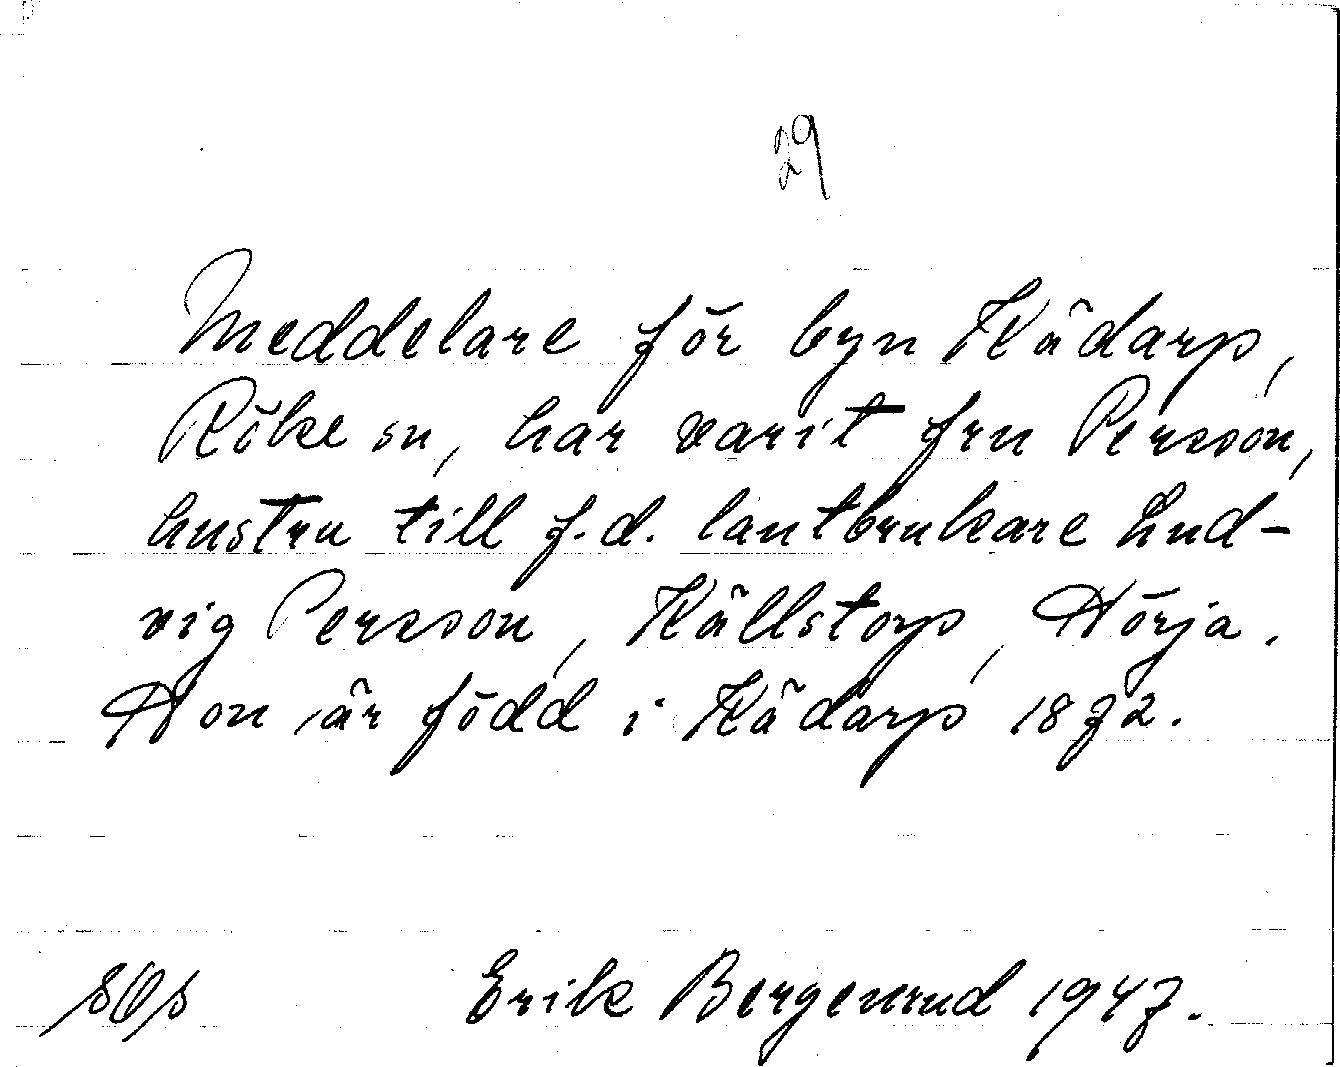 29
Meddelare för byn Kädarp,
Röke sn, har varit fru Persson,
hustru till f.d. lantbrukare Lud-
vig Persson, Källstorp, Hörja.
Hon är född i Kädarp 1872.
Erik Bergenrud 1947.